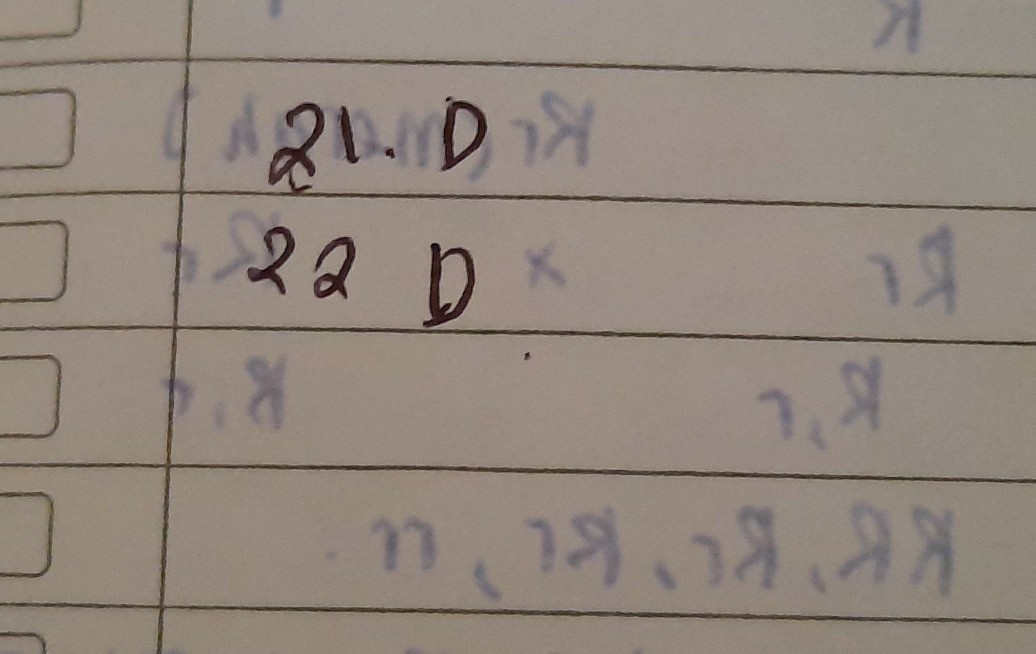 21. D
22 D